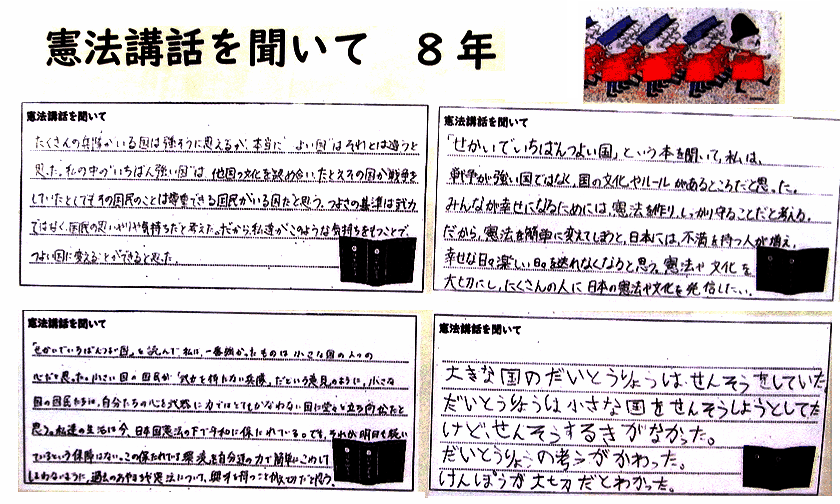 憲法講話を聞いて　8年
憲法講話を聞いて
たくさんの兵隊がいる国は強そうに思えるが、本当に"よい国"はそれとは違うと
思った。私の中の"いちばん強い国"は、他国の文化を認め合い、たとえその国が戦争を
していたとしてもその国民のことは尊重できる国民がいる国だと思う。つよさの基準は武力
ではなく、国民の思いやりや気持ちだと考えた。だから、私達がこのような気持ちをもつことで、
つよい国に変えることができると思った。
憲法講話を聞いて
「せかいでいちばんつよい国」という本を聞いて、私は、
戦争が強い国ではなく、国の文化やルールがあるところだと思った。
みんなが幸せになるためには、憲法を作り、しっかり守ることだと考える。
だから、憲法を簡単に変えてしまうと、日本には、不満を持つ人が増え、
幸せな日々、楽しい日々を送れなくなると思う。憲法や文化を
大切にし、たくさんの人に日本の憲法や文化を発信したい。
憲法講話を聞いて
「せかいでいちばんつよい国」を読んで私は、一番強かったものは小さな国の人々の
心だと思った。小さい国の国民が「武力を持たない兵隊」だという意見のように、小さな
国の国民たちは、自分たちの心を武器に力ではとてもかなわない国に堂々と立ち向かったと
思う。私達の生活は今、日本国憲法の下で平和に保たれている。でも、それが明日も続い
ているという保障はない。この保たれている
しまわないように、過去のあやまちや憲法について、興味を持つことが大切だと思う。
憲法講話を聞いて
大きな国のだいとうりょうは、せんそうをしていた。
だいとうりょうは小さな国をせんそうしようとしてた
けど、せんそうするきがなかった。
だいとうりょうの考うがかわった。
けんぽうが大切だとわかった。